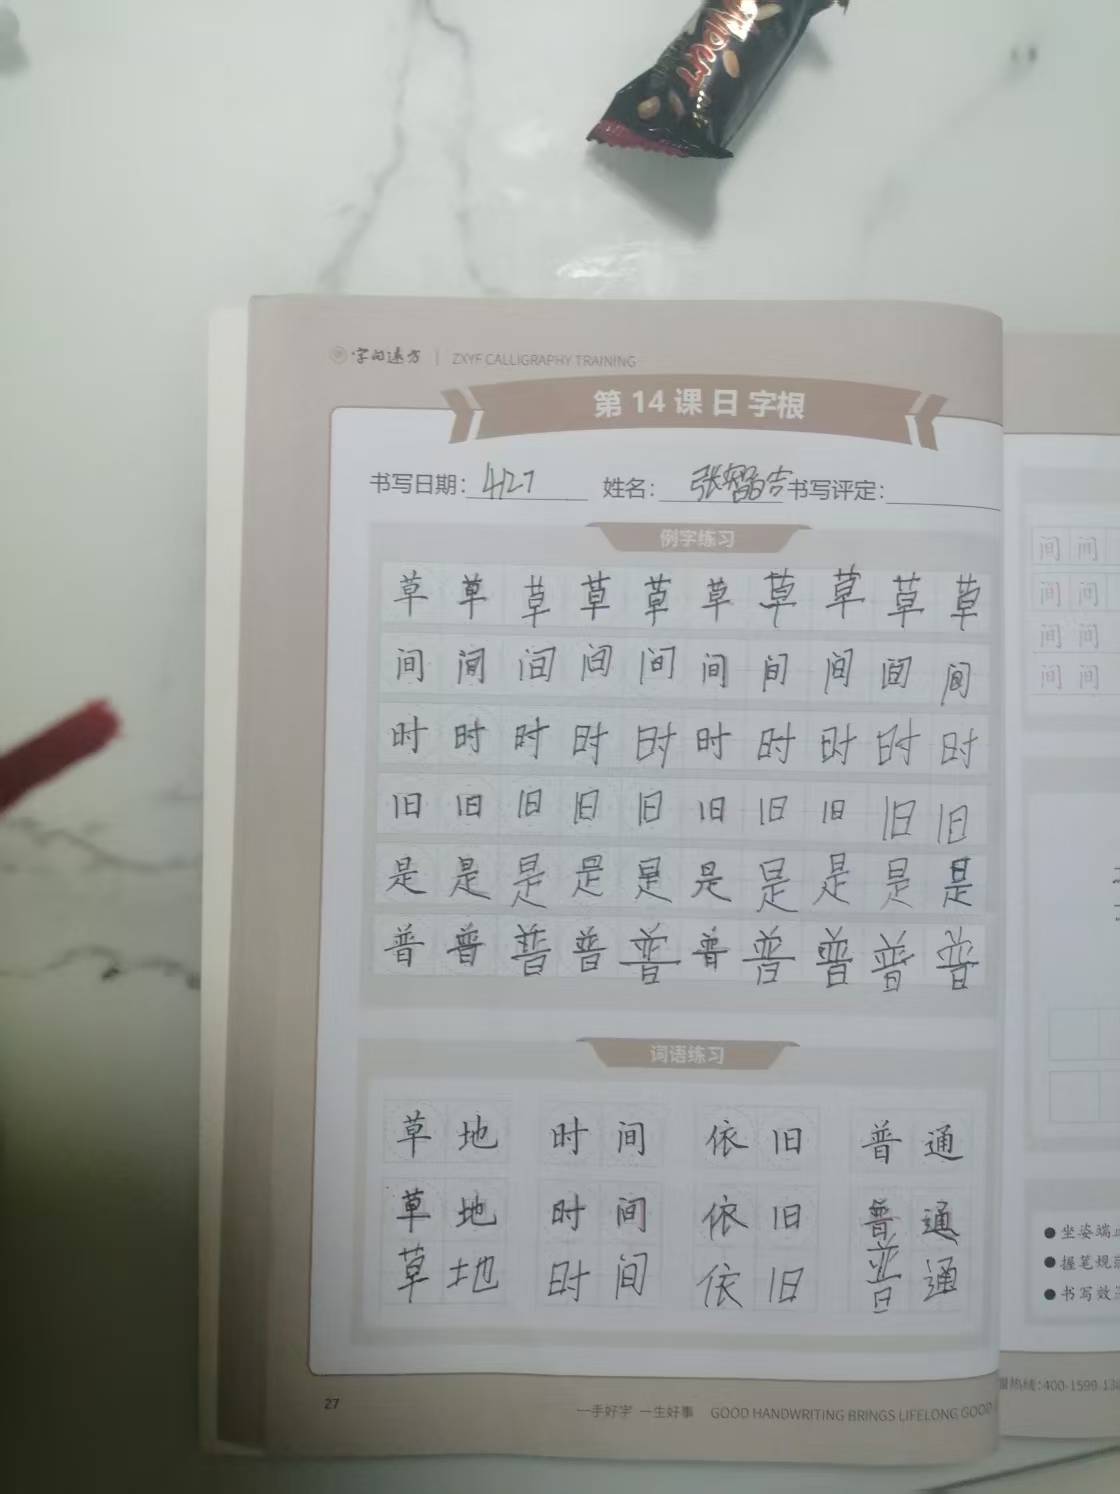 字向远方 | ZXYF CALLIGRAPHY TRAINING
第 14 课 日 字根
书写日期: 4/27 姓名: 张智吉 书写评定:
例字练习
草 草 草 草 草 草 草 草 草 草
间 间 间 间 间 间 间 间 间 间
时 时 时 时 时 时 时 时 时 时
旧 旧 旧 旧 旧 旧 旧 旧 旧 旧
是 是 是 是 是 是 是 是 是 是
普 普 普 普 普 普 普 普 普 普
词语练习
草 地 时 间 依 旧 普 通
草 地 时 间 依 旧 普 通
草 地 时 间 依 旧 普 通
27
一手好字 一生好事 GOOD HANDWRITING BRINGS LIFELONG GOOD
间 间
间 间
间 间
间 间
●坐姿端
●握笔规
●书写效
热线:400-1599-13